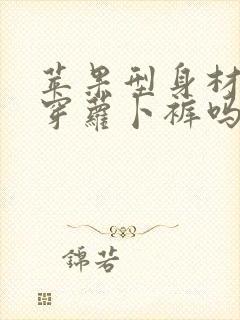 苹果型身材
穿蘿卜裤吗
錦若